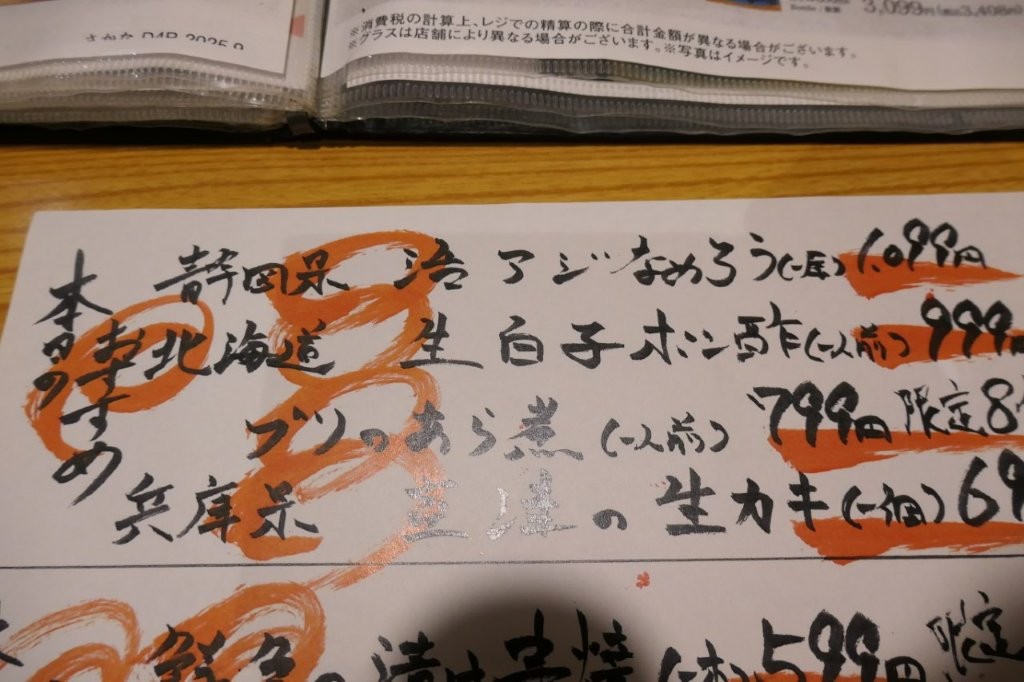 3,099円(税込3,408円)
※消費税の計算上、レジでの精算の際に合計金額が異なる場合がございます。
※グラスは店舗により異なる場合がございます。※写真はイメージです。
さかな D4P 2025.9
本日の
おすすめ
静岡県 活 アジなめろう(一尾) 1,099円
北海道 生 白子ポン酢(一人前) 999
ブリのあら煮(一人前) 799円 限定8
兵庫県 室津の生カキ(一個) 69
鮮魚の漬け串焼(一本) 599円 限定